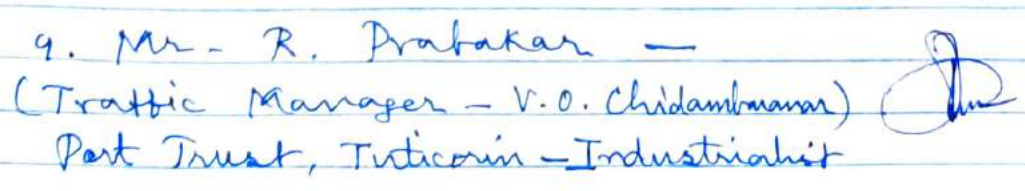 9. Mr. R. Prabakar —
(Traffic Manager - V.O. Chidambaranar)
Port Trust, Tuticorin - Industrialist